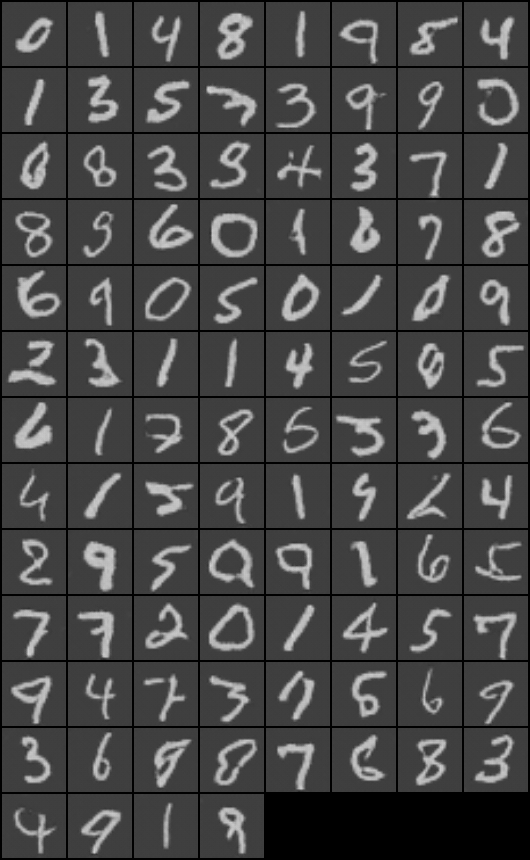 0 1 4 8 1 9 8 4
1 3 5 3 9 9 0
0 8 3 9 4 3 7 1
8 9 6 0 1 6 7 8
6 9 0 5 0 1 0 9
2 3 1 1 4 5 0 5
6 1 7 8 5 5 3 6
4 1 5 9 1 9 2 4
2 9 5 0 9 1 6 5
7 7 2 0 1 4 5 7
9 4 7 3 6 6 9
3 6 8 7 6 8 3
4 9 1 9